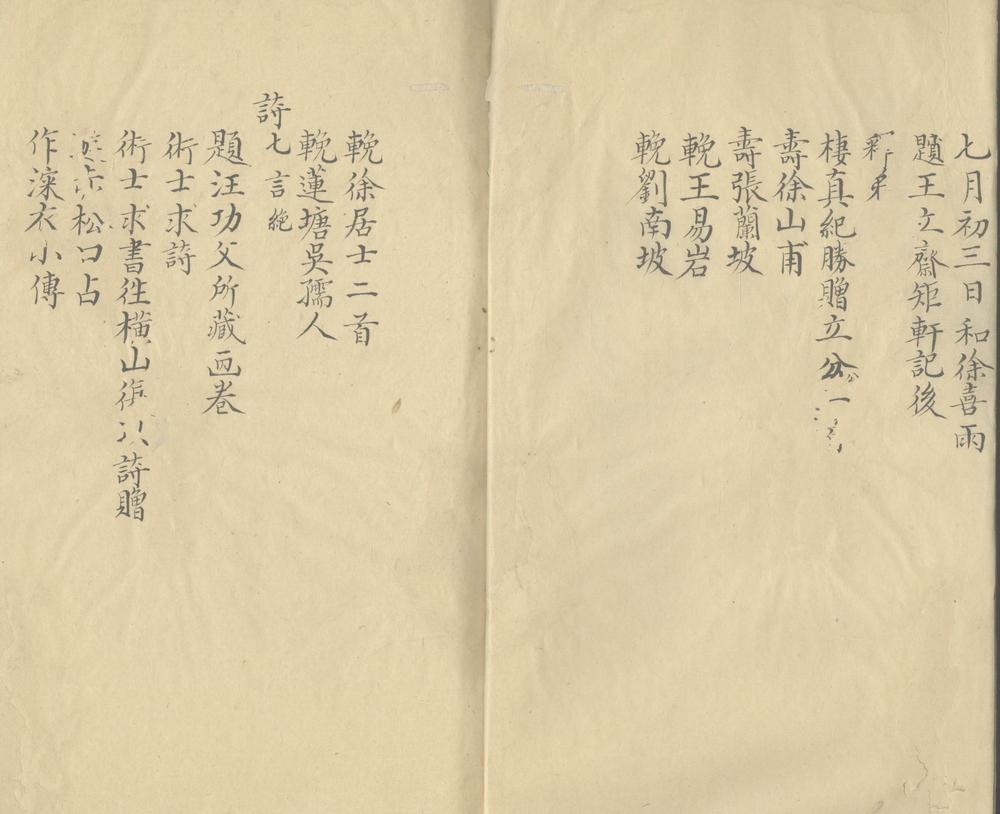 七月初三日和徐喜雨
題王立齋矩軒記後
棲真紀勝贈立
壽徐山甫
壽張蘭坡
輓王易岩
輓劉南坡
輓徐居士二首
輓蓮塘吳孺人
詩七言絶
題汪功父所藏画卷
術士求詩
術士求書徃橫山 以詩贈
松口占
作滚衣小傳